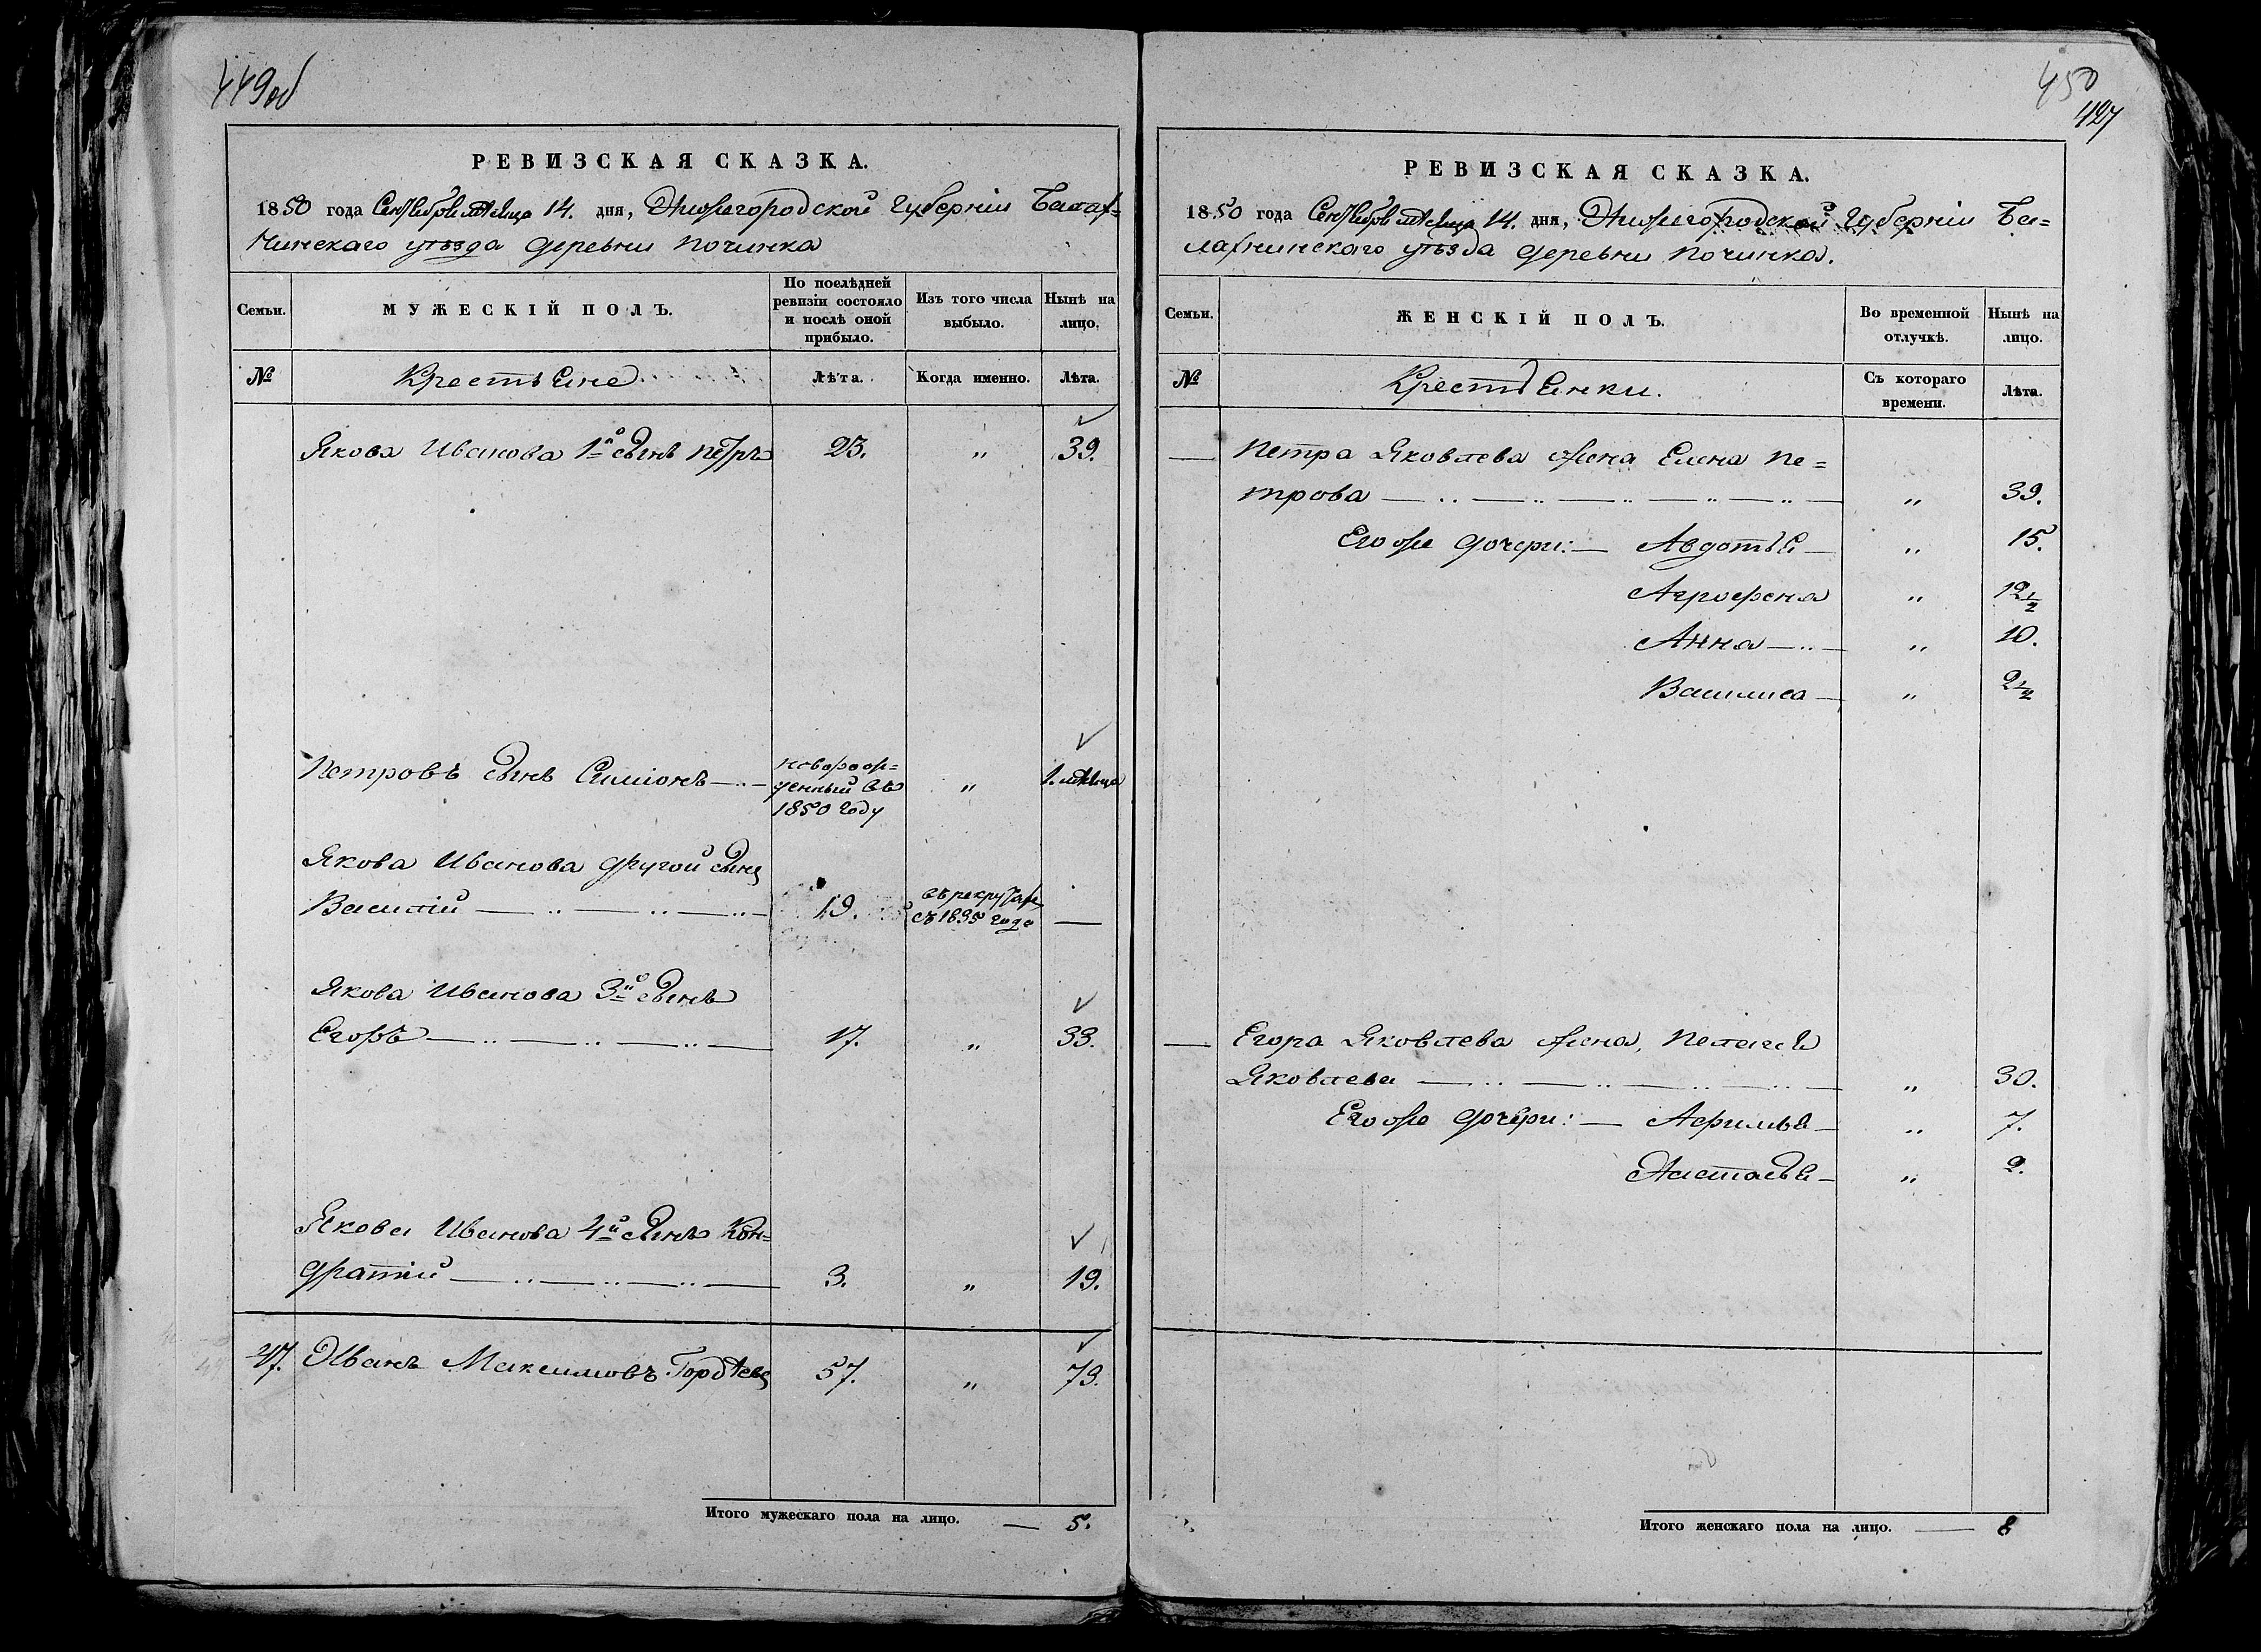 449об
РЕВИЗСКАЯ СКАЗКА.
1850 года Сентября мѣсяца 14. дня, Нижегородской Губерніи Балах=
нинскаго уѣзда деревни Починка
Семьи.
МУЖЕСКІЙ ПОЛЪ.
По послѣдней
ревизіи состояло
и послѣ оной
прибыло.
Изъ того числа
выбыло.
Нынѣ на
лицо.
№
Крестьяне
Лѣта.
Когда именно.
Лѣта.
Якова Иванова 1й сынъ Петръ 23. „ 39.
Петровъ сынъ Симіонъ новорож=
денный въ „ 1. мѣсяца
1850 году
Якова Иванова другой сынъ
Василій 19. въ рекрутахъ
съ 1835 года —
Якова Иванова 3й сынъ
Егоръ 17. „ 33.
Якова Иванова 4й сынъ Кон=
дратій 3. „ 19.
47. Иванъ Максимовъ Гордѣевъ 57. „ 73.
Итого мужескаго пола на лицо. — 5.
450
427
РЕВИЗСКАЯ СКАЗКА.
1850 года Сентября мѣсяца 14. дня, Нижегородской Губерніи Ба=
лахнинскаго уѣзда деревни Починка.
Семьи.
ЖЕНСКІЙ ПОЛЪ.
Во временной
отлучкѣ.
Нынѣ на
лицо.
№
Крестьянки.
Съ котораго
времени.
Лѣта.
— Петра Яковлева жена Елена Пе=
трова „ 39.
Его же дочери: — Авдотья — „ 15.
Агрофена „ 12½
Анна „ 10.
Василиса — „ 2½
— Егора Яковлева жена, Пелагея
Яковлева „ 30.
Его же дочери: — Афимья — „ 7.
Настасья — „ 2.
Итого женскаго пола на лицо. — 8